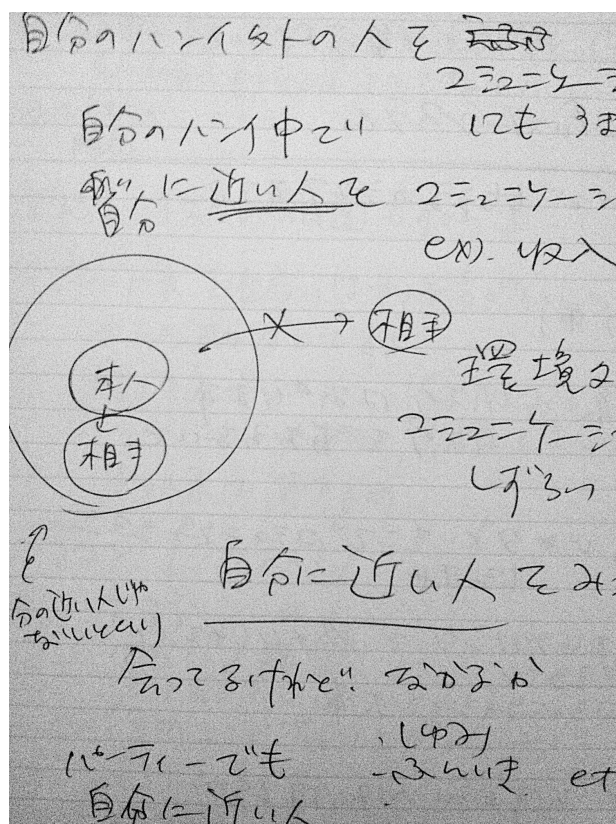 自分のハンイ外の人を
コミュニケーシ
自分のハンイ中で
にても うま
自分に近い人を コミュニケーシ
ex). 収入
相手
本人
と
相手
環境
コミュニケーシ
しずらい
自分に近い人をみ
分の近い人じゃ
ないといい
会ってるけれど! なかなか
パーティーでも
・しゅみ
・ふんいき et
自分に近い人